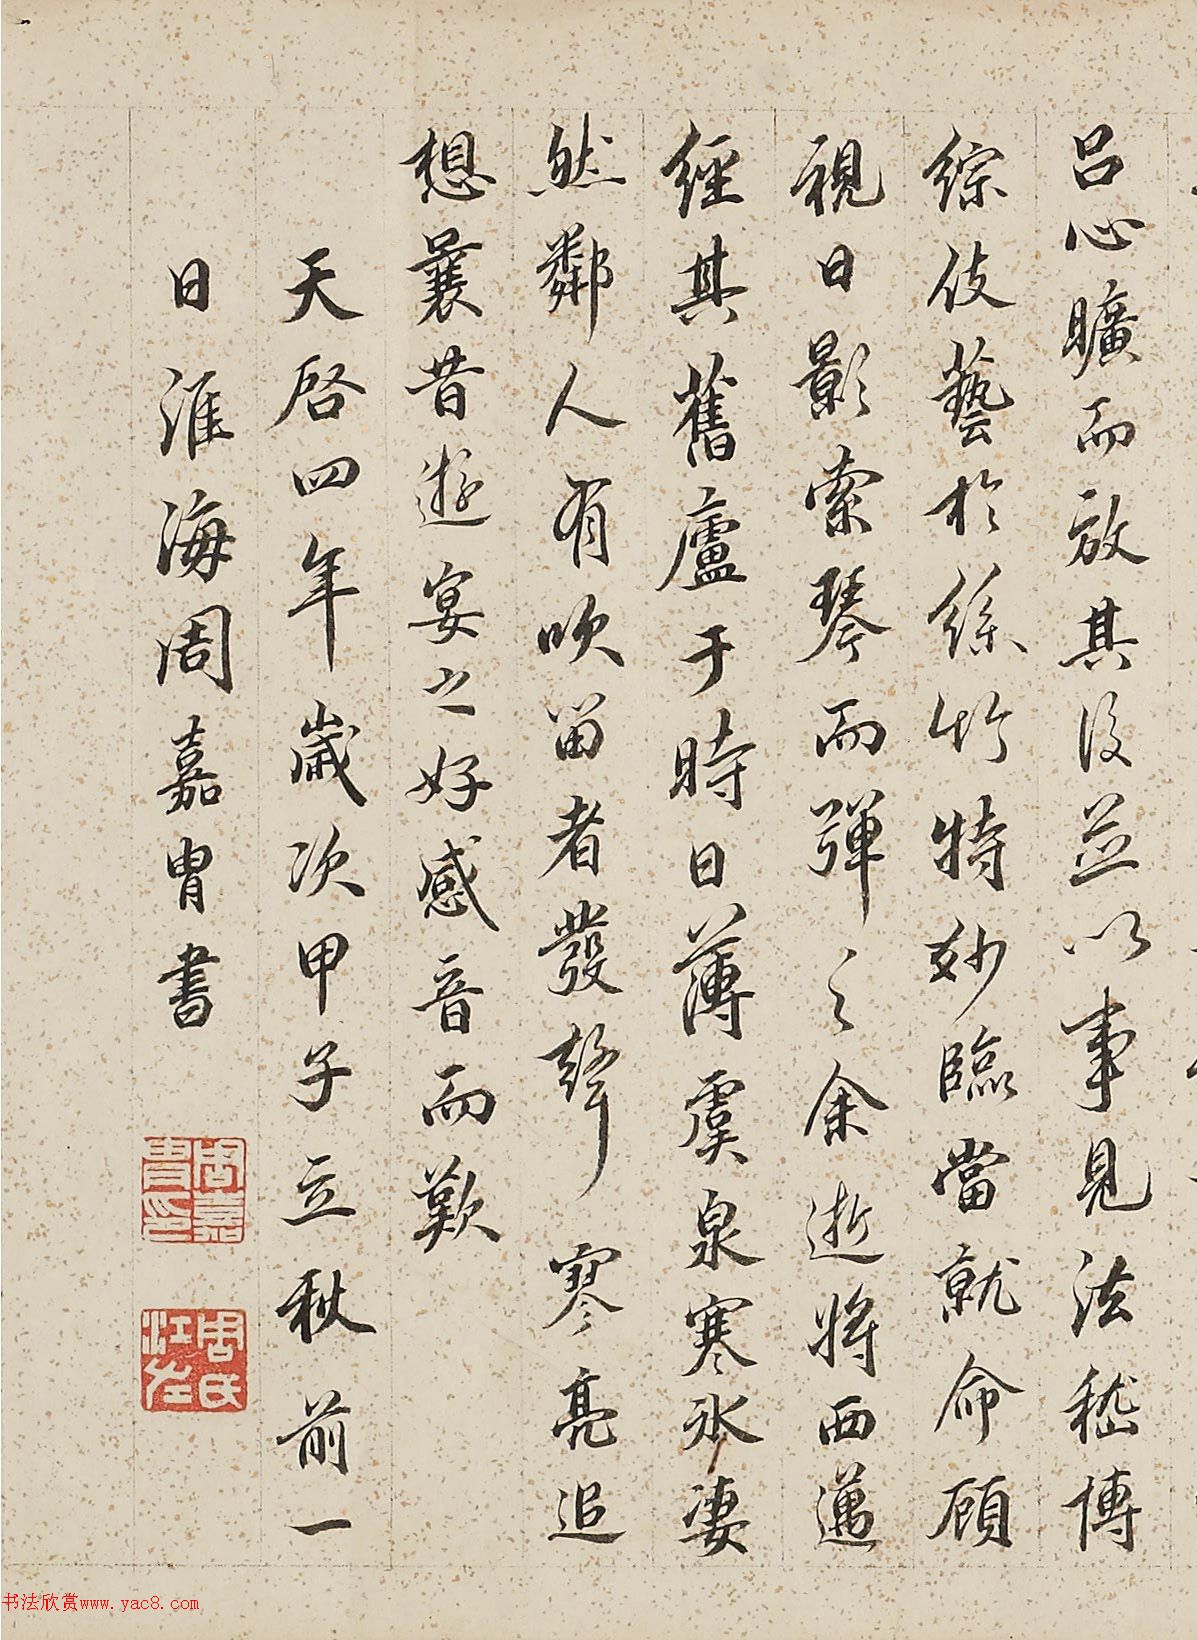 呂心曠而放其後並以事見法嵇博
綜伎藝於絲竹特妙臨當就命顧
視日影索琴而彈之余逝將西邁
經其舊廬于時日薄虞泉寒冰淒
然鄰人有吹笛者發聲寥亮追
想曩昔遊宴之好感音而歎
天啓四年歲次甲子立秋前一
日淮海周嘉胄書
周嘉胄印
周氏江左
书法欣赏www.yac8.com